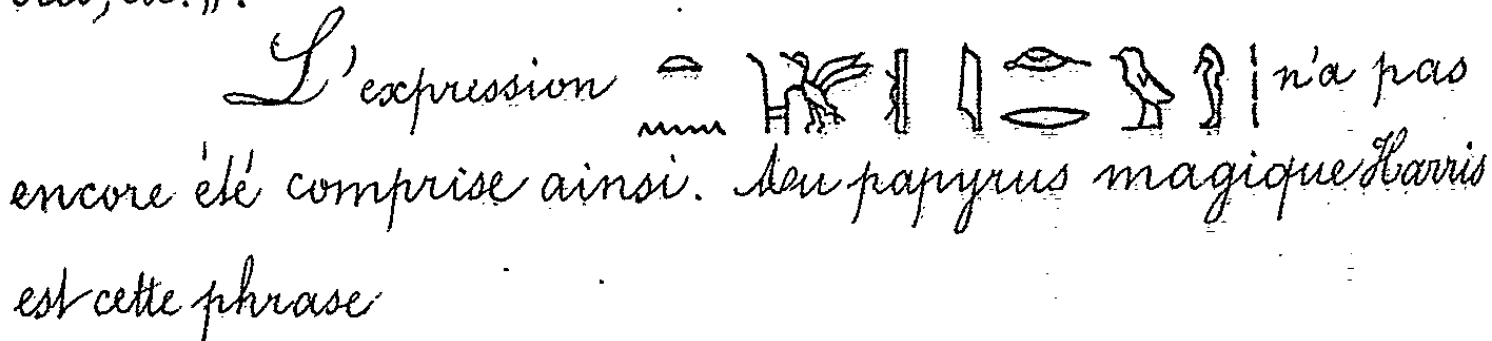 L'expression n'a pas
encore été comprise ainsi. Au papyrus magique Harris
est cette phrase